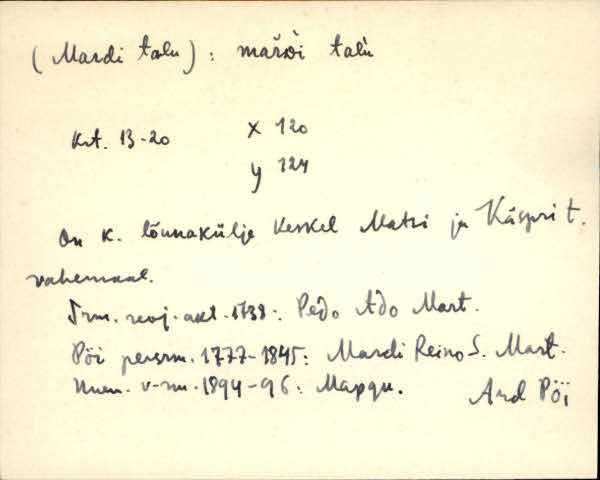 (Mardi talu): marᴅi talu
Krt. 13-20 x 120
y 124
On k. lõunakülje keskel Matsi ja Käspri t.
vahemaal.
Trm. revj. akt. 1738: Pedo Ado Mart.
Pöi persrm. 1777-1845: Mardi Reino S. Mart.
Inen. v-nu. 1894-96: Марди. Ard Pöi